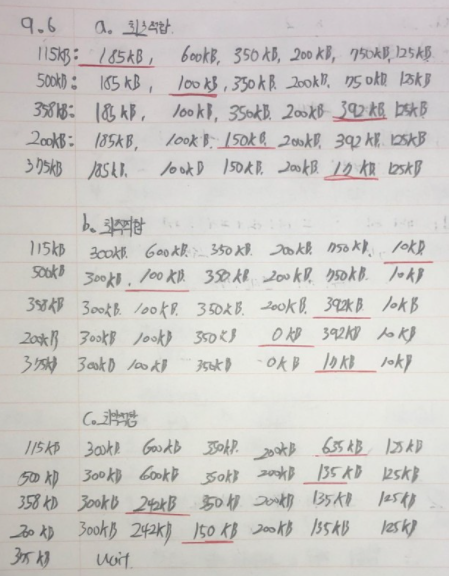 9.6 a. 최초적합.
115kB: 185kB, 600kB, 350kB, 200kB, 750kB, 125kB
500kB: 185kB, 100kB, 350kB, 200kB, 750kB 125kB
358kB: 185kB, 100kB, 350kB, 200kB 392kB 125kB
200kB: 185kB, 100kB. 150kB. 200kB, 392kB 125kB
375kB 185kB. 100kB 150kB. 200kB. 17kB 125kB
b. 최적적합
115kB 300kB. 600kB. 350kB. 200kB. 750kB. 10kB
500kB 300kB. 100kB. 350kB. 200kB. 750kB. 10kB
358kB 300kB. 100kB. 350kB. 200kB. 392kB 10kB
200kB 300kB 100kB 350kB 0kB 392kB 10kB
375kB 300kB 100kB 350kB 0kB 17kB 10kB
C. 최악적합
115kB 300kB 600kB 350kB. 200kB 635kB 125kB
500kB 300kB 600kB 350kB 200kB 135kB 125kB
358kB 300kB 242kB 350kB 200kB 135kB 125kB
200kB 300kB 242kB 150kB 200kB 135kB 125kB
375kB wait